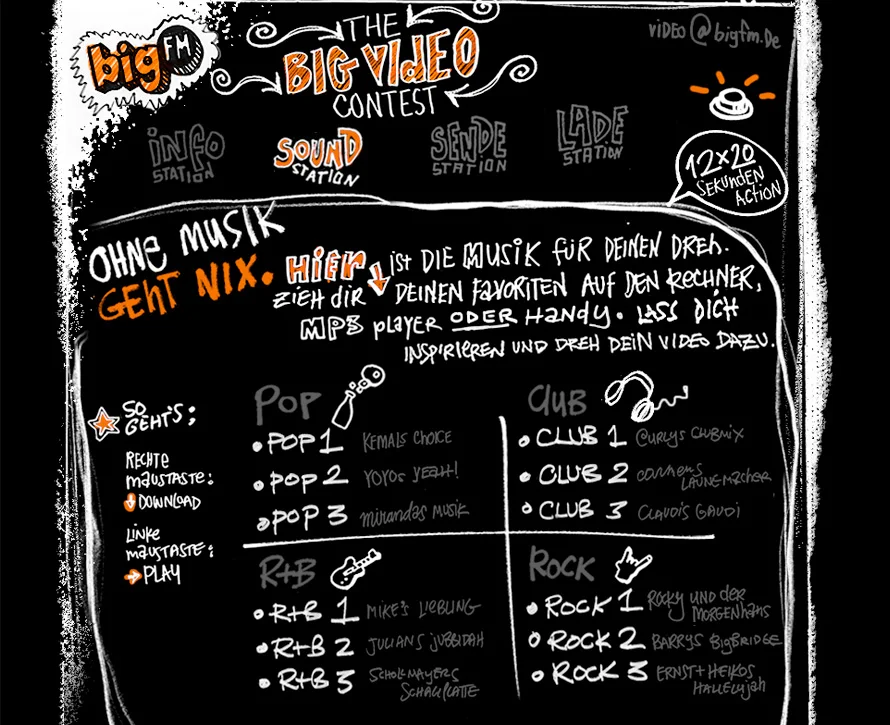 bigFM
THE
BIG VIDEO
CONTEST
VIDEO@bigfm.De
INFO
STATION
SOUND
STATION
SENDE
STATION
LADE
STATION
12x20
SEKUNDEN
ACTION
OHNE MUSIK
GEHT NIX.
HIER IST DIE MUSIK FÜR DEINEN DREH.
ZIEH DIR DEINEN FAVORITEN AUF DEN RECHNER,
MP3 player ODER Handy. LASS DICH
INSPIRIEREN UND DREH DEIN VIDEO DAZU.
SO
GEHT'S:
RECHTE
MAUSTASTE:
DOWNLOAD
LINKE
MAUSTASTE:
PLAY
POP
POP 1 KEMALS CHOICE
POP 2 YOYOS YEAH!
POP 3 MIRANDAS MUSIK
CLUB
CLUB 1 CURLYS CLUBMIX
CLUB 2
LAUNEMACHER
CLUB 3 CLAUDIS GAUDI
R+B
R+B 1 MIKE'S LIEBLING
R+B 2 JULIANS JUBBIDAH
R+B 3 SCHOLLMAYERS
SCHALLPLATTE
ROCK
ROCK 1 ROCKY UND DER
MORGENHANS
ROCK 2 BARRYS BIGBRIDGE
ROCK 3 ERNST+HEIKOS
HALLELUJAH